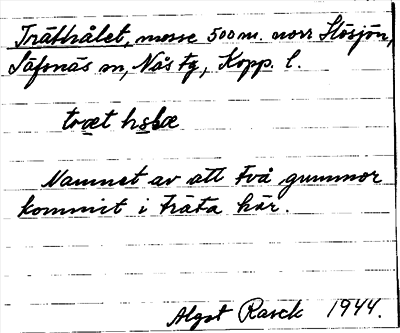 Träthålet, mosse 500 m. norr Stösjön,
Säfsnäs sn, Nås tg, Kopp. l.
Namnet av att två gummor
kommit i träta här.
Algot Rasck 1944.